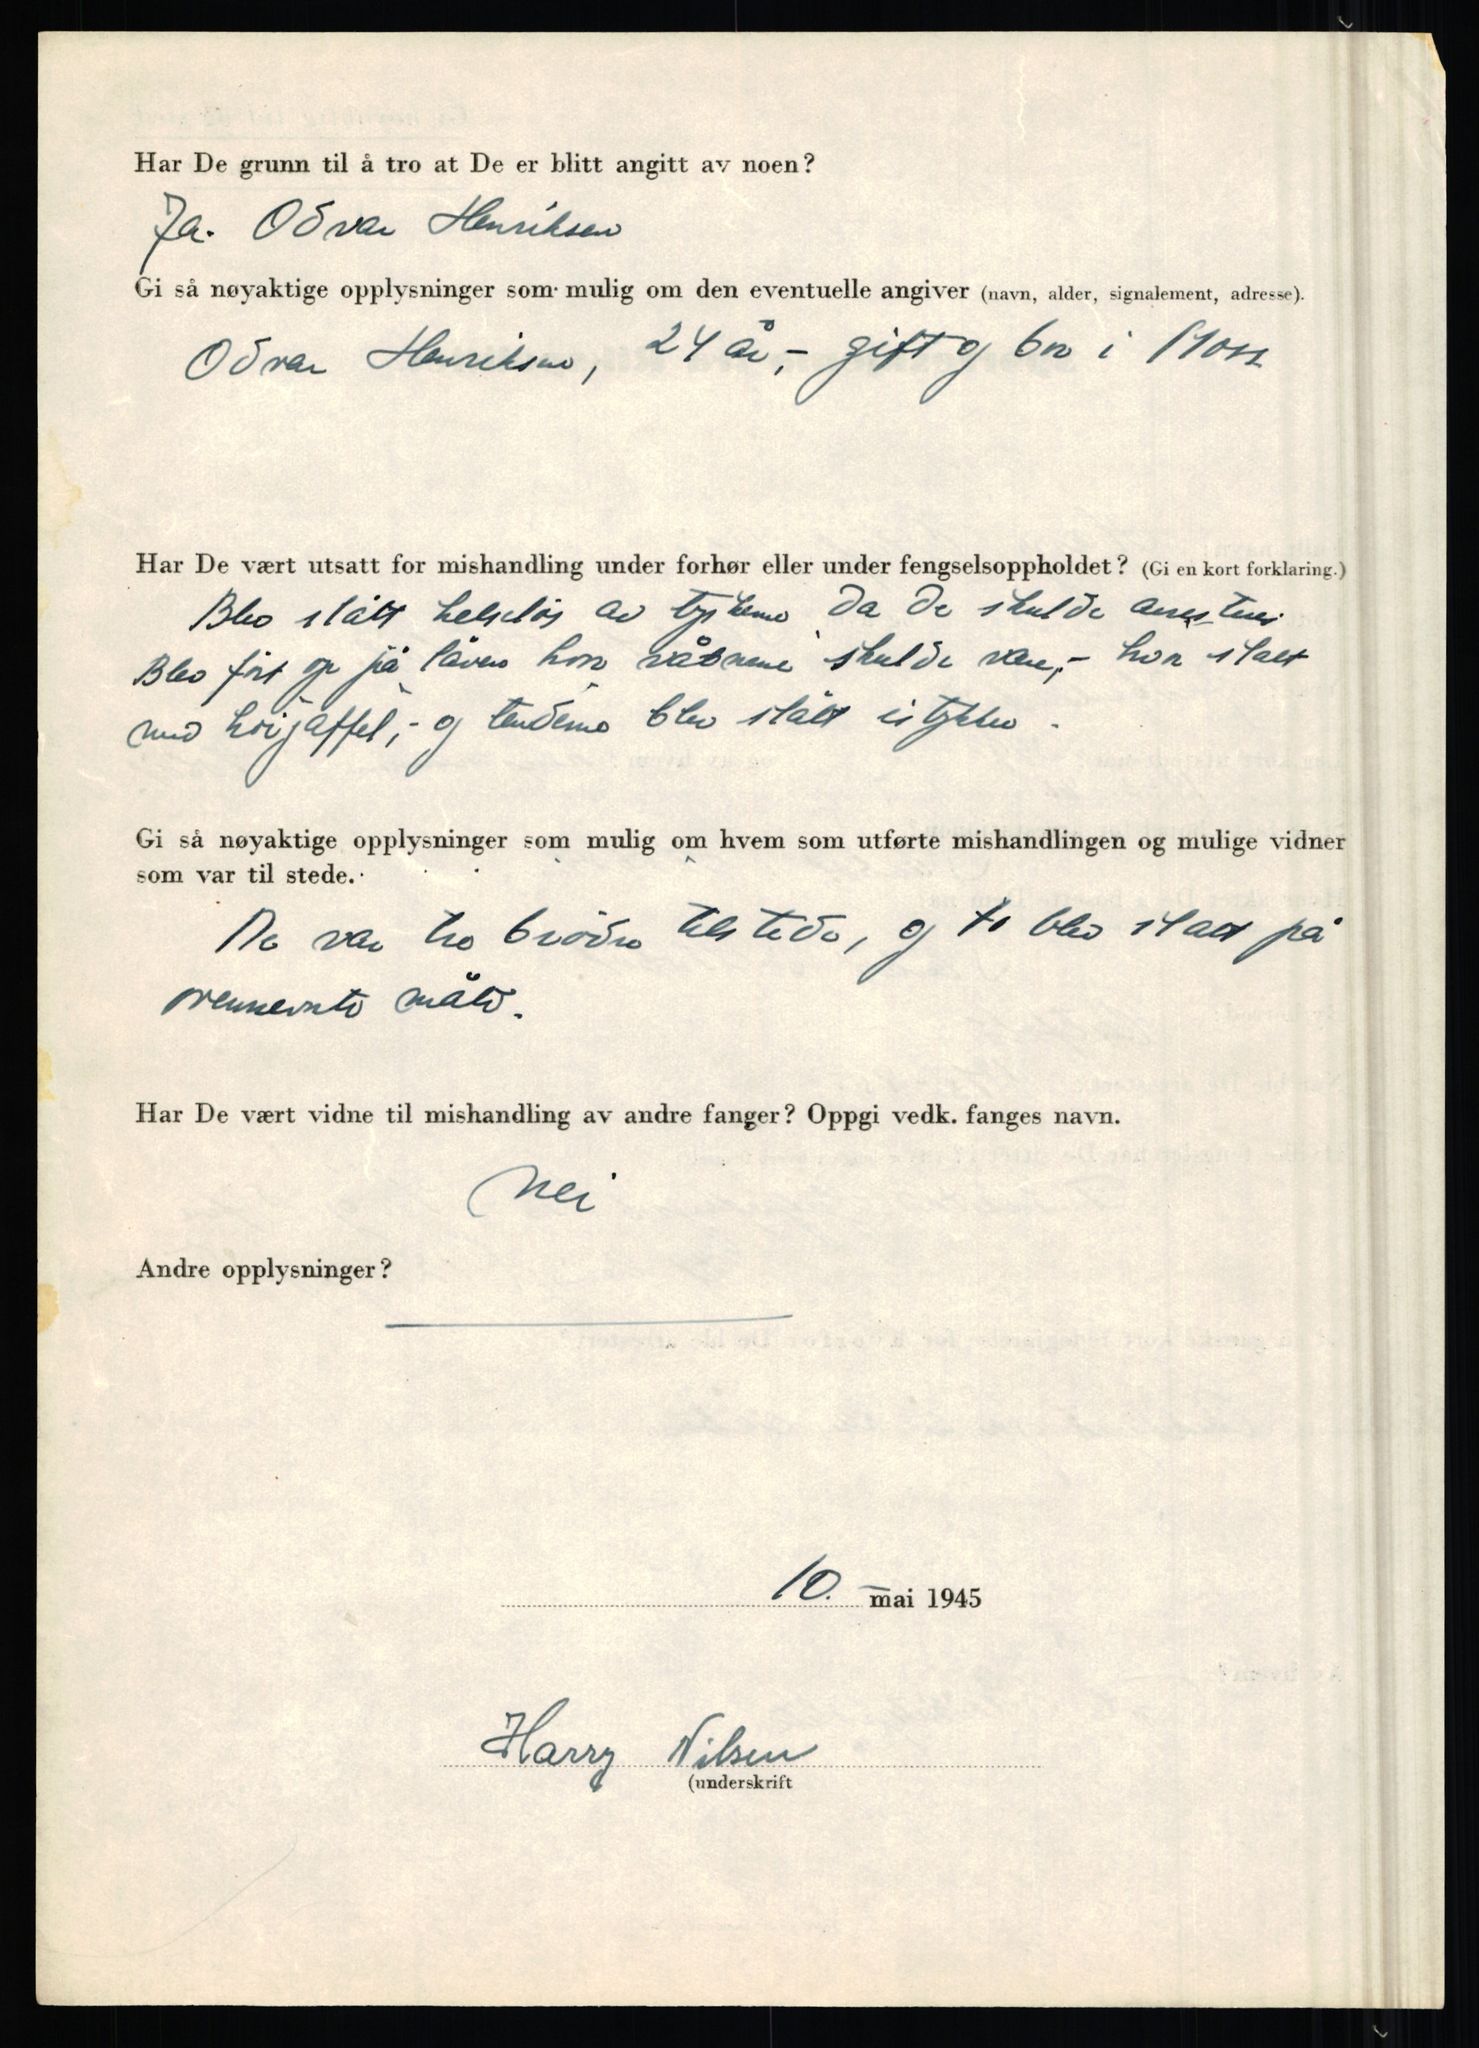 Har De grunn til å tro at De er blitt angitt av noen?
Ja. Odvar Henriksen
Gi så nøyaktige opplysninger som mulig om den eventuelle angiver (navn, alder, signalement, adresse).
Odvar Henriksen, 24 år,- gift og bor i Moss
Har De vært utsatt for mishandling under forhør eller under fengselsoppholdet? (Gi en kort forklaring.)
Blev slått helseløs av tyskerne da de skulde arrestere
Blev ført op på låven hvor våbnene skulde være,- hvor slått
med høigaffel,- og tenderne blev slått i stykker.
Gi så nøyaktige opplysninger som mulig om hvem som utførte mishandlingen og mulige vidner
som var til stede.
De var tre brødre tilstede, og to blev slått på
ovennevnte måte.
Har De vært vidne til mishandling av andre fanger? Oppgi vedk. fanges navn.
Nei
Andre opplysninger?
10. mai 1945
Harry Nilsen
(underskrift